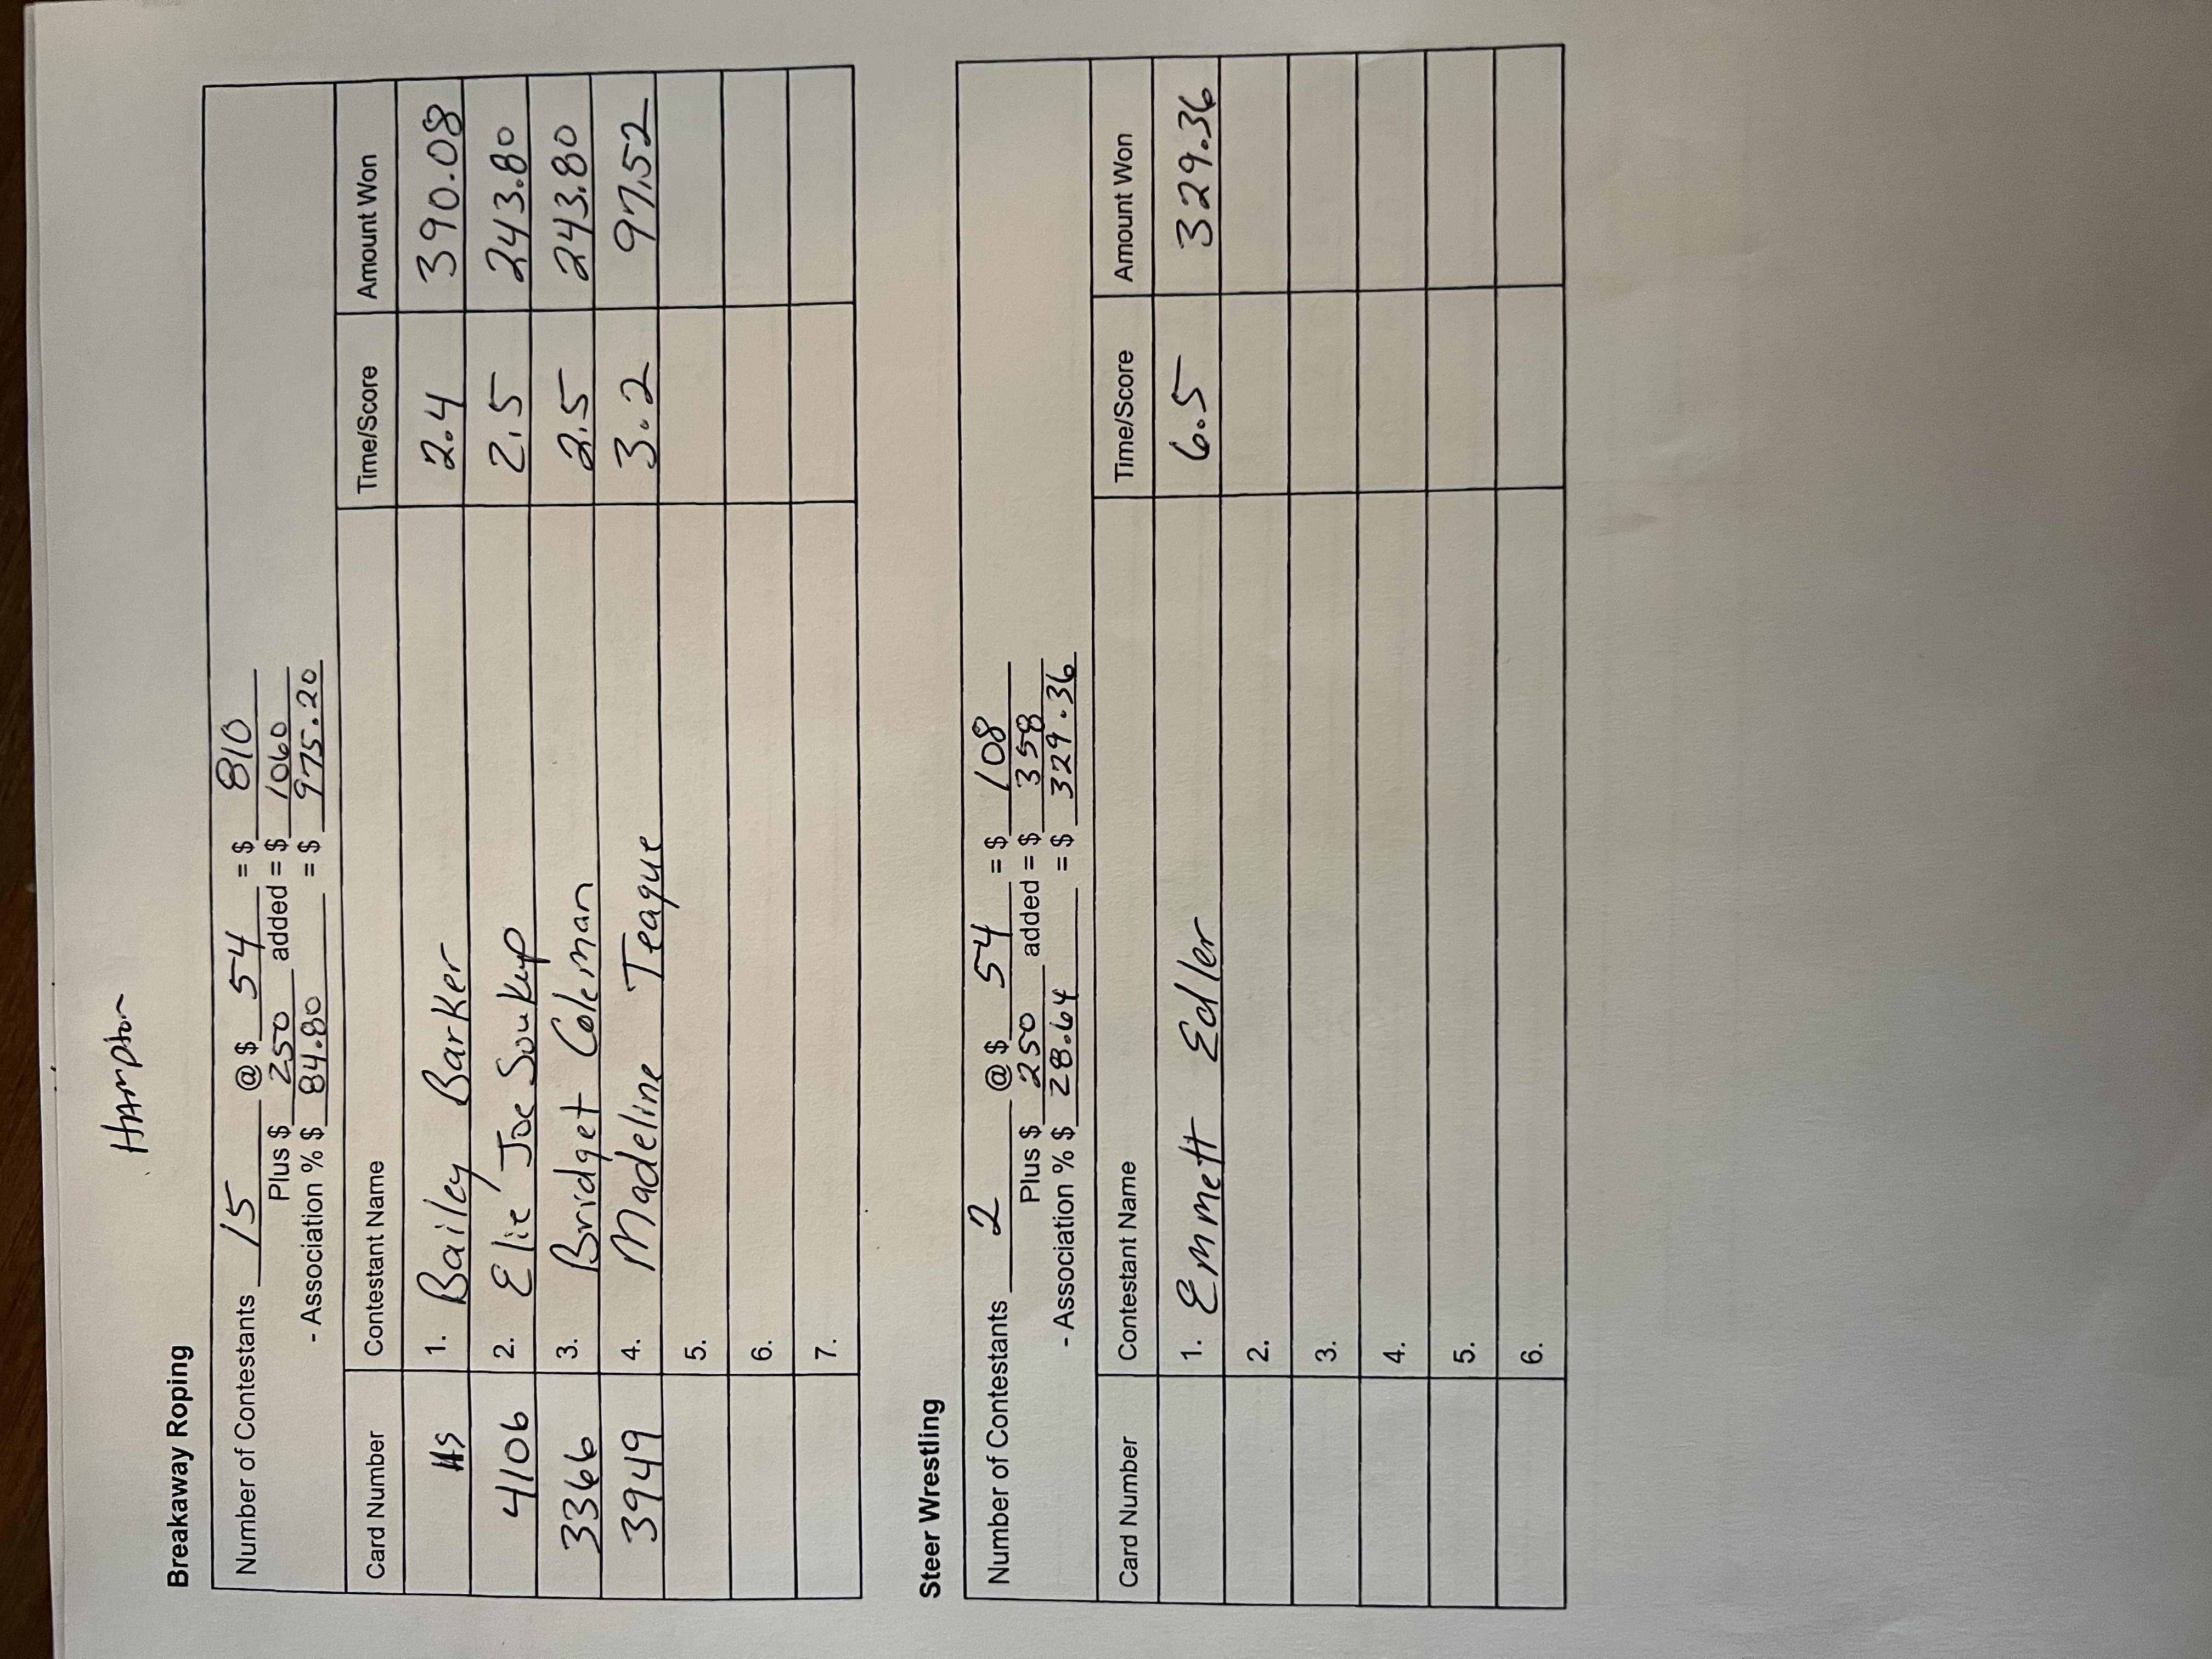 Hampton
Breakaway Roping
Number of Contestants 15 @ $ 54 = $ 810
Plus $ 250 added = $ 1060
- Association % $ 84.80 = $ 975.20
Card Number Contestant Name Time/Score Amount Won
HS 1. Bailey Barker 2.4 390.08
4106 2. Elie Joe Soukup 2.5 243.80
3366 3. Bridget Coleman 2.5 243.80
3949 4. Madeline Teague 3.2 97.52
5.
6.
7.
Steer Wrestling
Number of Contestants 2 @ $ 54 = $ 108
Plus $ 250 added = $ 358
- Association % $ 28.64 = $ 329.36
Card Number Contestant Name Time/Score Amount Won
1. Emmett Edler 6.5 329.36
2.
3.
4.
5.
6.